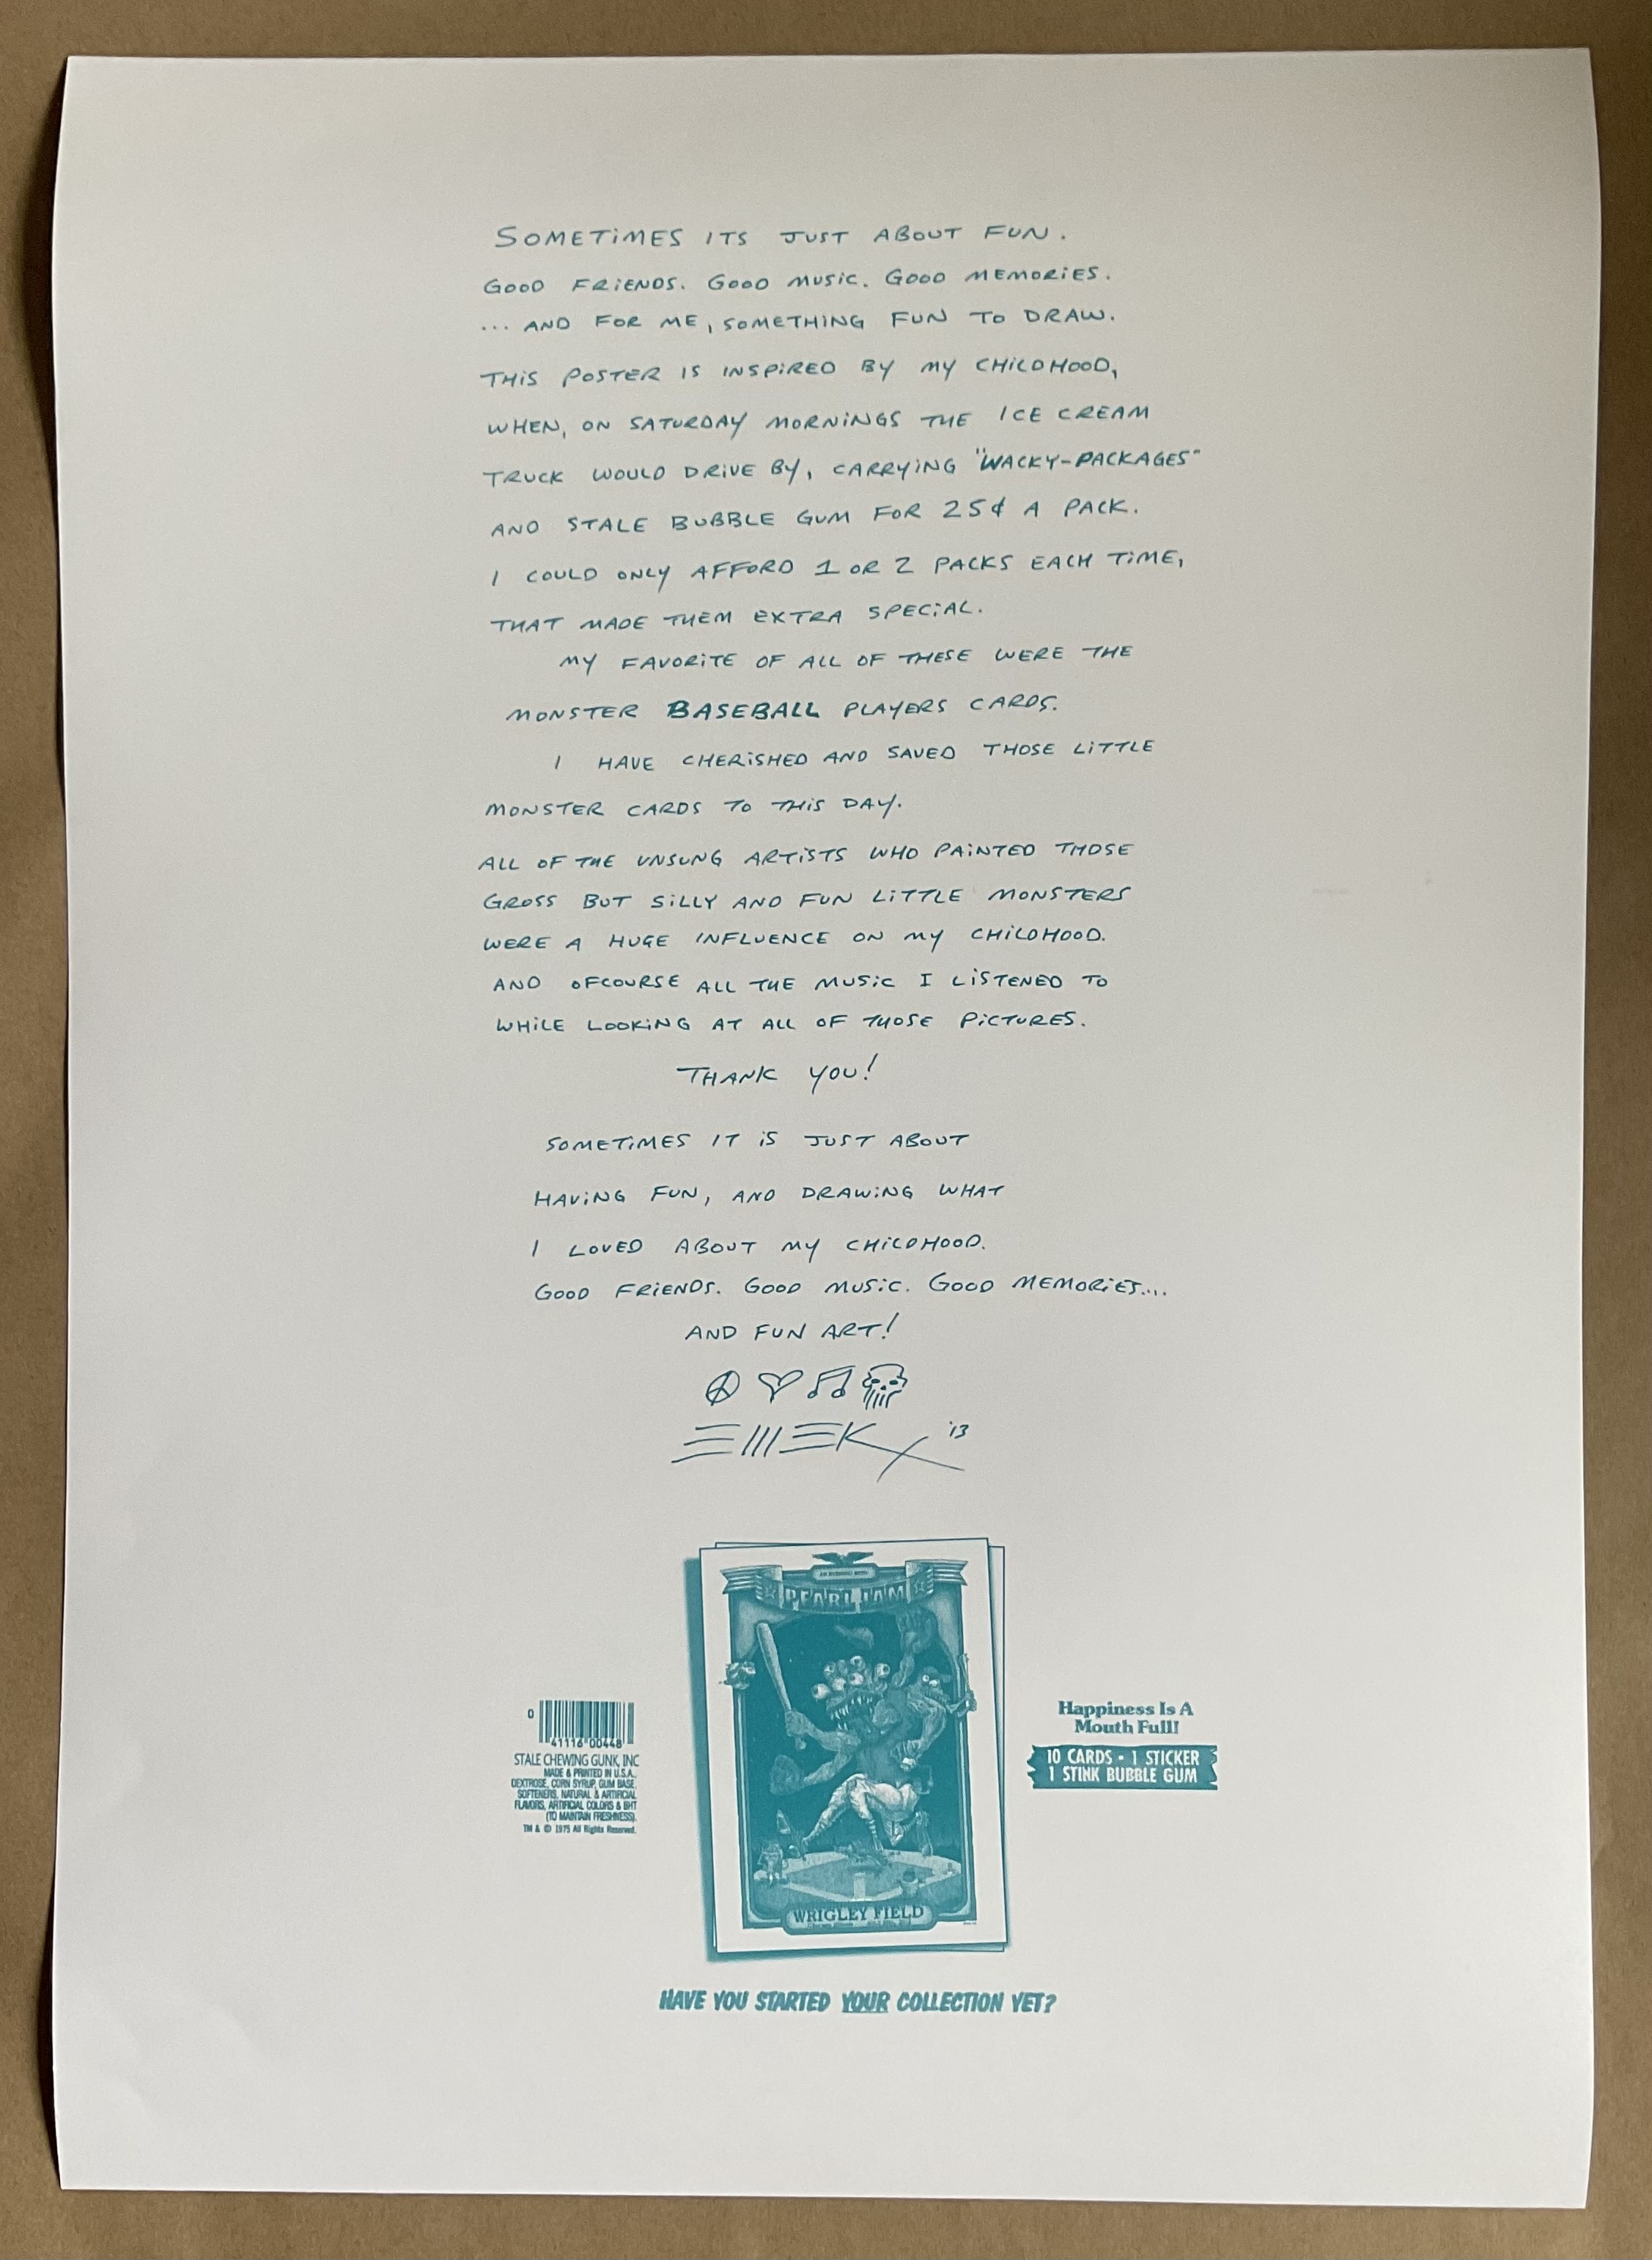 SOMETIMES ITS JUST ABOUT FUN.
GOOD FRIENDS. GOOD MUSIC. GOOD MEMORIES.
... AND FOR ME, SOMETHING FUN TO DRAW.
THIS POSTER IS INSPIRED BY MY CHILDHOOD,
WHEN, ON SATURDAY MORNINGS THE ICE CREAM
TRUCK WOULD DRIVE BY, CARRYING "WACKY-PACKAGES"
AND STALE BUBBLE GUM FOR 25¢ A PACK.
I COULD ONLY AFFORD 1 OR 2 PACKS EACH TIME,
THAT MADE THEM EXTRA SPECIAL.
MY FAVORITE OF ALL OF THESE WERE THE
MONSTER BASEBALL PLAYERS CARDS.
I HAVE CHERISHED AND SAVED THOSE LITTLE
MONSTER CARDS TO THIS DAY.
ALL OF THE UNSUNG ARTISTS WHO PAINTED THOSE
GROSS BUT SILLY AND FUN LITTLE MONSTERS
WERE A HUGE INFLUENCE ON MY CHILDHOOD.
AND OFCOURSE ALL THE MUSIC I LISTENED TO
WHILE LOOKING AT ALL OF THOSE PICTURES.
THANK YOU!
SOMETIMES IT IS JUST ABOUT
HAVING FUN, AND DRAWING WHAT
I LOVED ABOUT MY CHILDHOOD.
GOOD FRIENDS. GOOD MUSIC. GOOD MEMORIES....
AND FUN ART!
EMEK '13
AN EVENING WITH
PEARL JAM
WRIGLEY FIELD
0
41116 00448
STALE CHEWING GUNK, INC
MADE & PRINTED IN U.S.A.
DEXTROSE, CORN SYRUP, GUM BASE,
SOFTENERS, NATURAL & ARTIFICIAL
FLAVORS, ARTIFICIAL COLORS & BHT
(TO MAINTAIN FRESHNESS).
TM & © 1975 All Rights Reserved.
Happiness Is A
Mouth Full!
10 CARDS - 1 STICKER
1 STINK BUBBLE GUM
HAVE YOU STARTED YOUR COLLECTION YET?